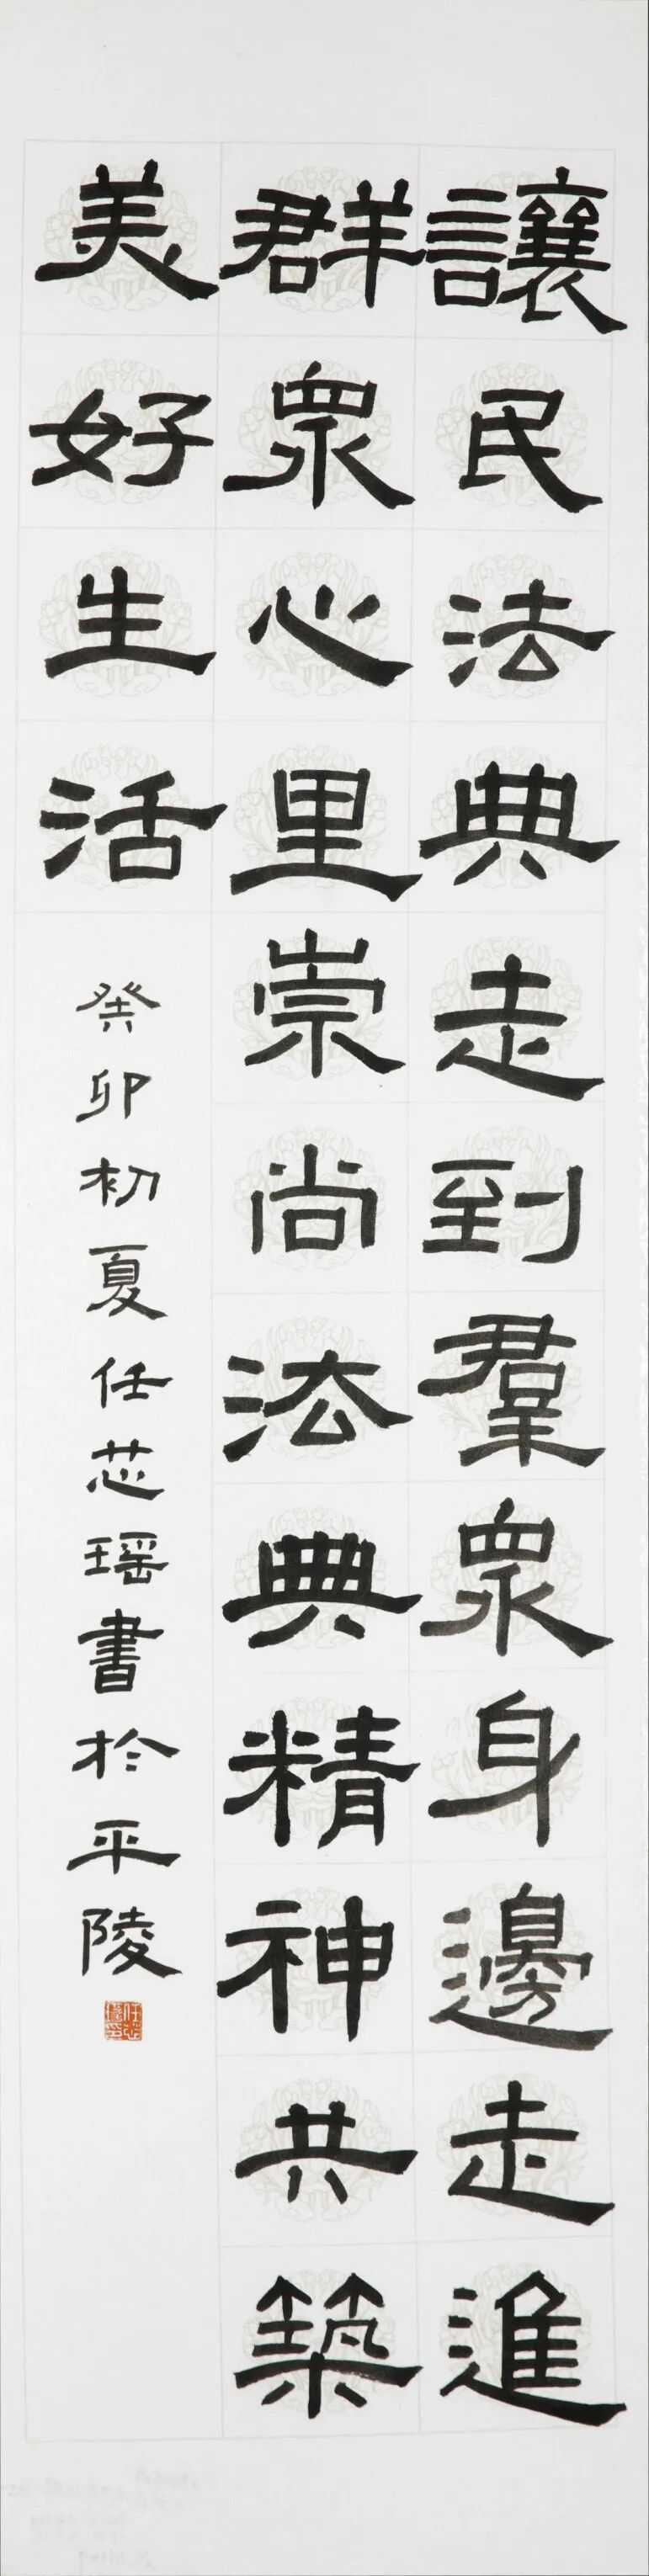 讓民法典走到羣眾身邊走進
群眾心里崇尚法典精神共築
美好生活
癸卯初夏任芯瑶書於平陵